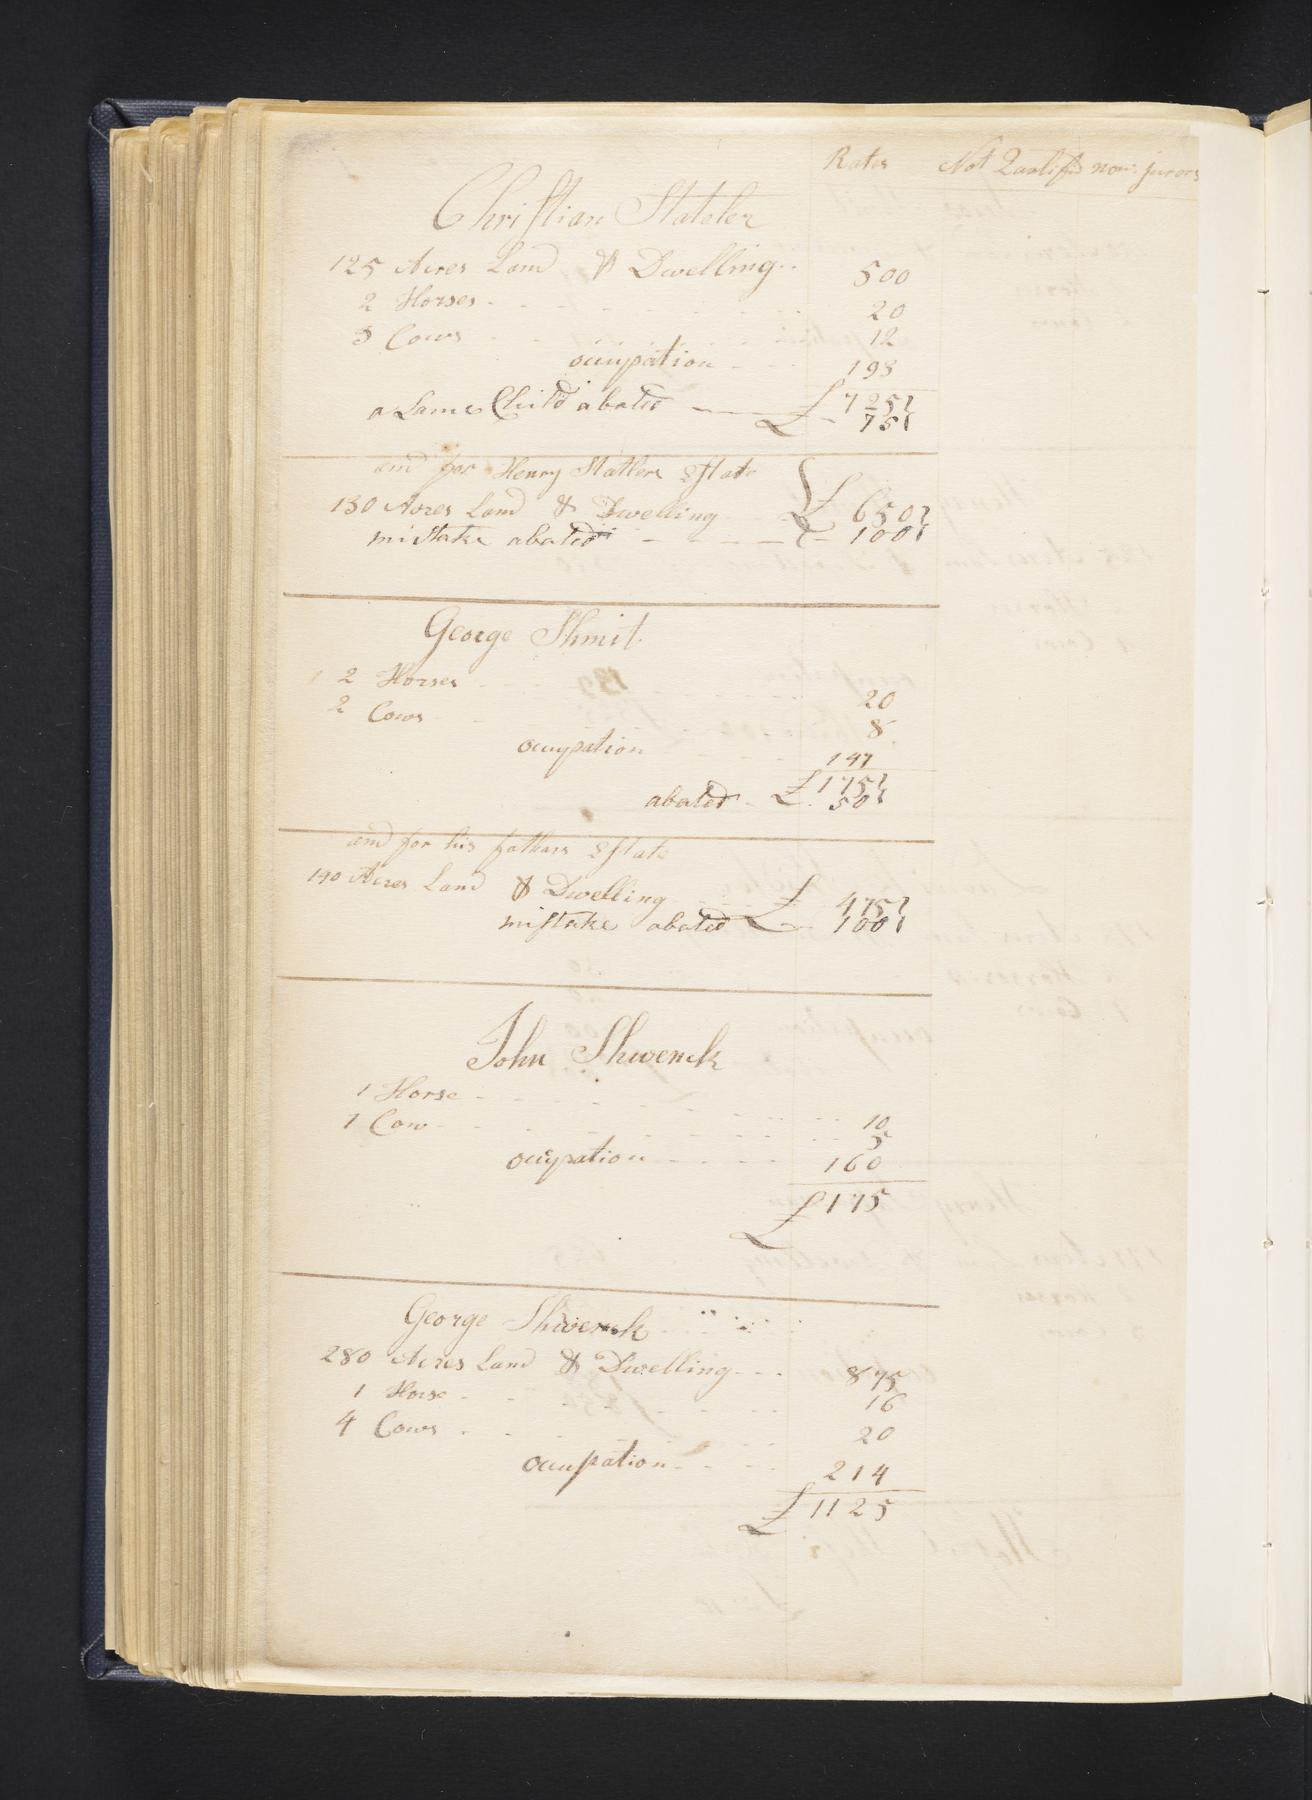 Rates Not Qualifid non: jurors
Christian Stateler
125 Acres Land & Dwelling 500
2 Horses 20
3 Cows 12
ocupation 193
£ 725
a Lame Child abated 75
and for Henry Statlers Estate
130 Acres Land & Dwelling £ 650
mistake abated 100
George Shmit
2 Horses 20
2 Cows 8
ocupation 147
£ 175
abated 50
and for his fathers Estate
140 Acres Land & Dwelling £ 475
mistake abated 100
John Shwenck
1 Horse 10
1 Cow 5
ocupation 160
£ 175
George Shwenck
280 Acres Land & Dwelling 875
1 Horse 16
4 Cows 20
ocupation 214
£ 1125